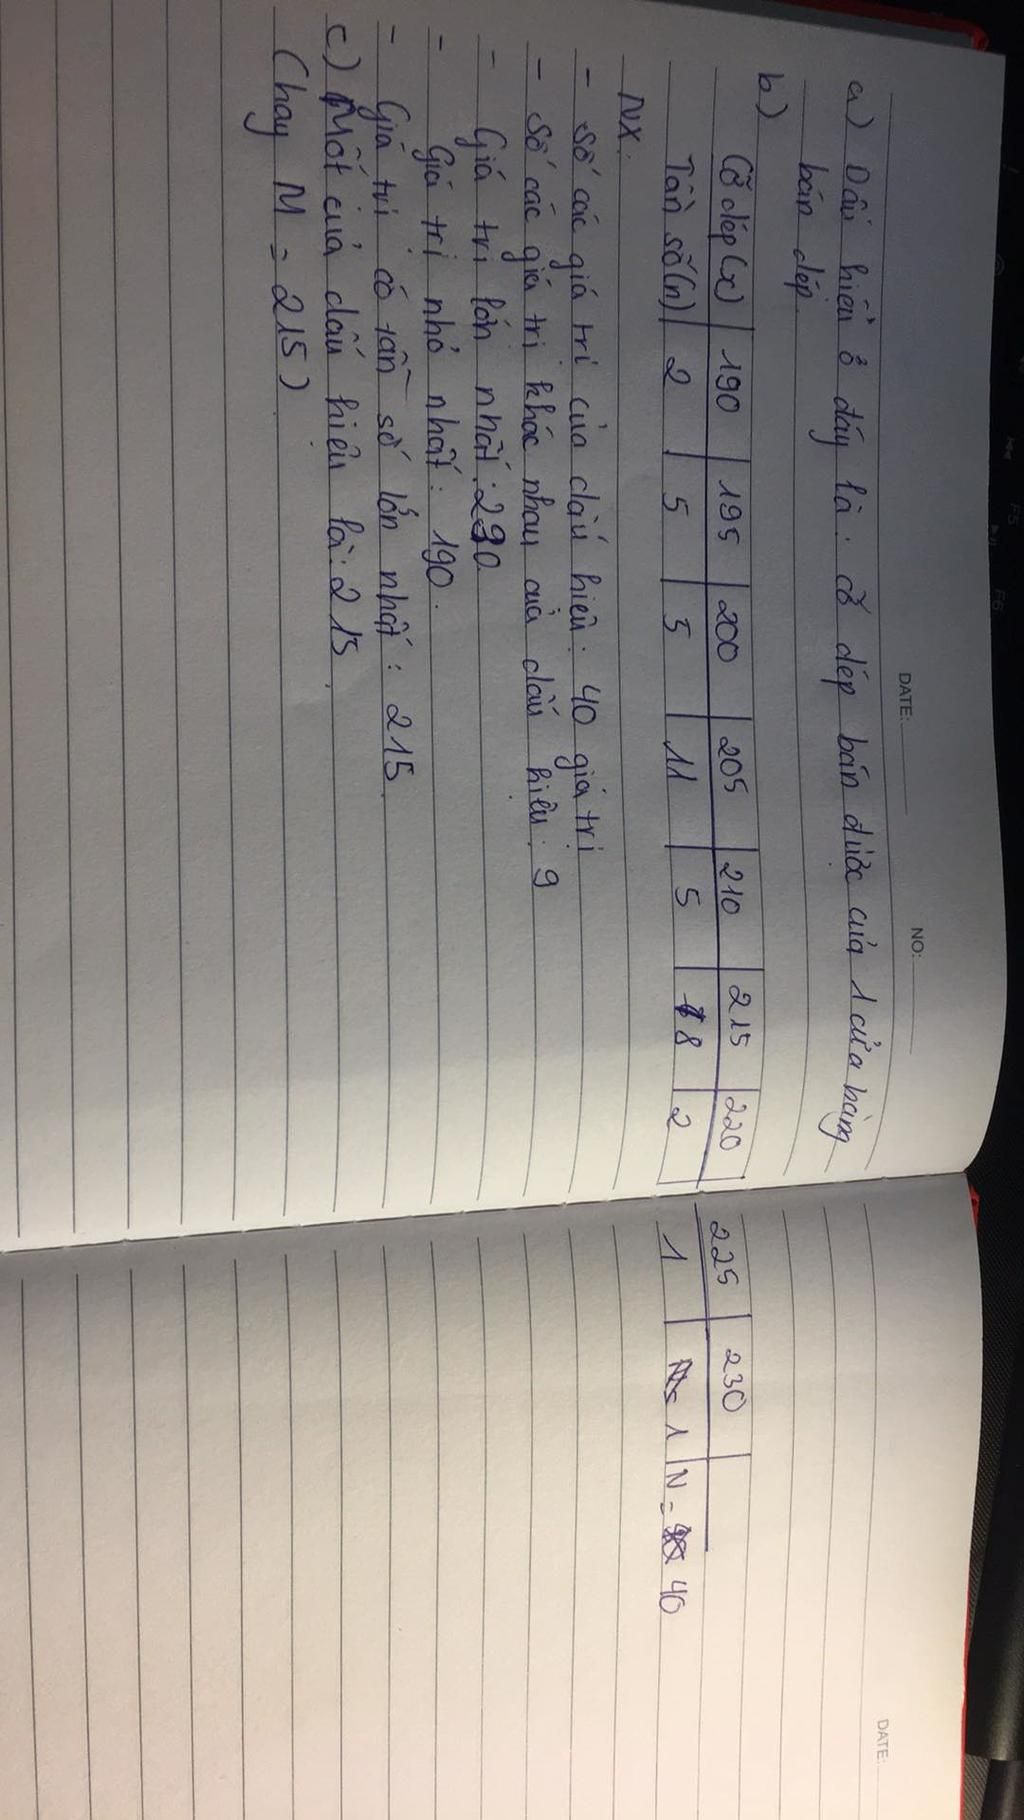 DATE: NO:
a) Dấu hiệu ở đây là: cỡ dép bán được của 1 cửa hàng
bán dép.
b)
Cỡ dép(x) 190 195 200 205 210 215 220 225 230
Tần số(n) 2 5 5 11 5 8 2 1 1 N = 40
NX:
- Số các giá trị của dấu hiệu: 40 giá trị
- Số các giá trị khác nhau của dấu hiệu: 9
- Giá trị lớn nhất: 230
- Giá trị nhỏ nhất: 190.
- Giá trị có tần số lớn nhất: 215.
c) Mốt của dấu hiệu là: 215.
(hay M = 215)
DATE: